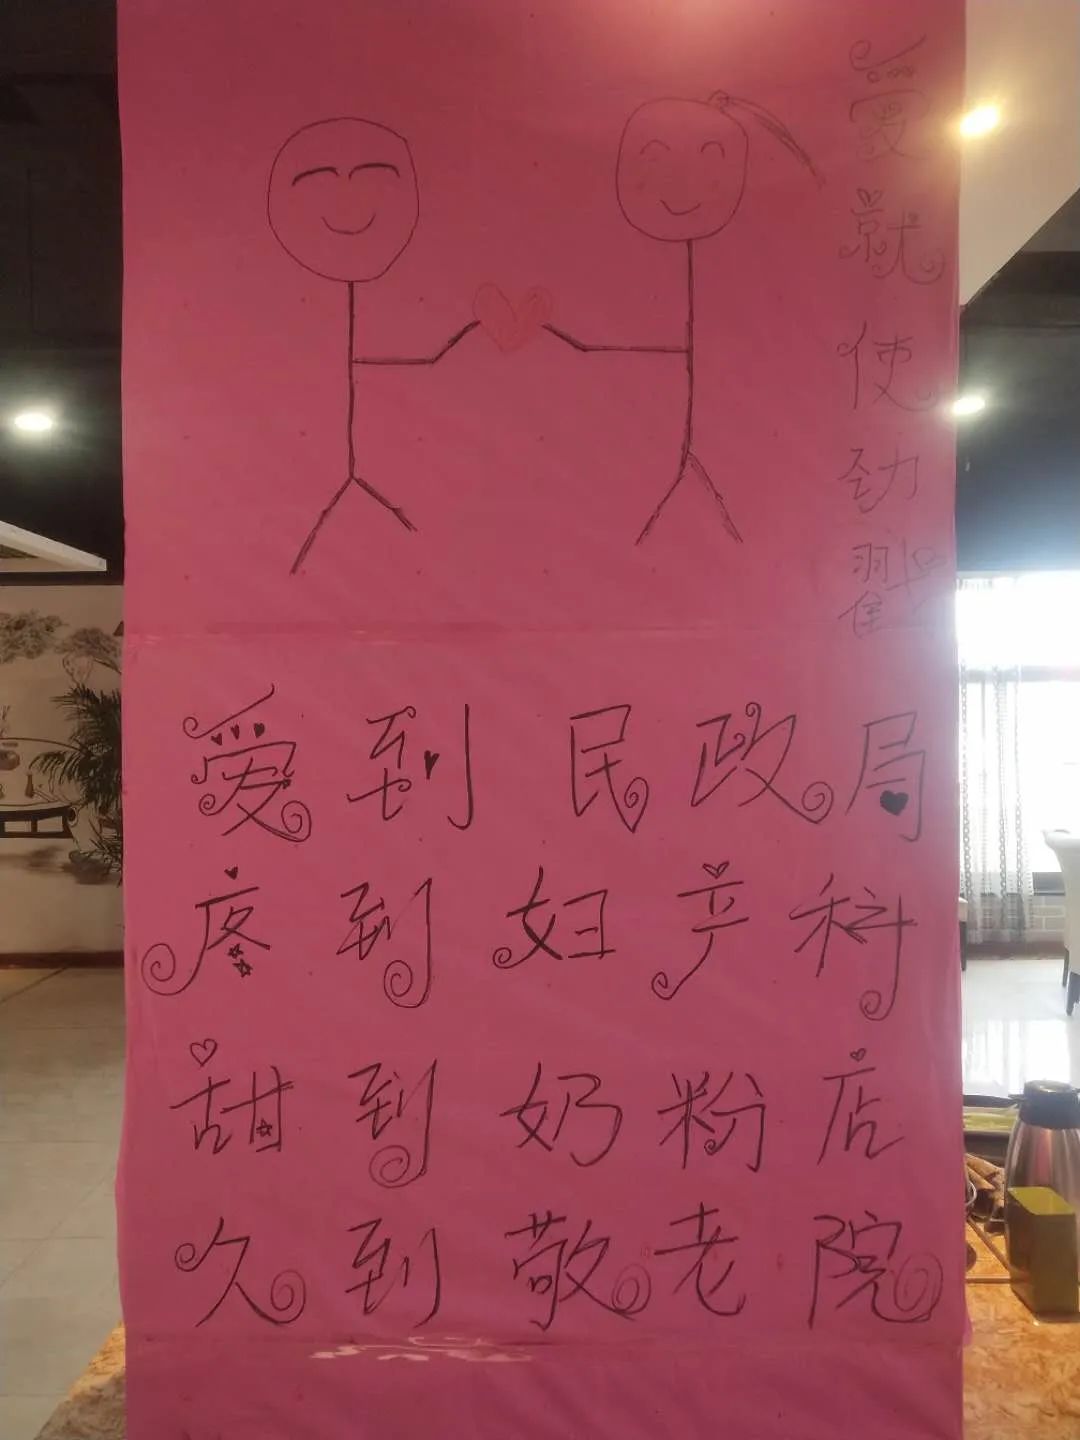 爱就使劲戳
爱到民政局
疼到妇产科
甜到奶粉店
久到敬老院